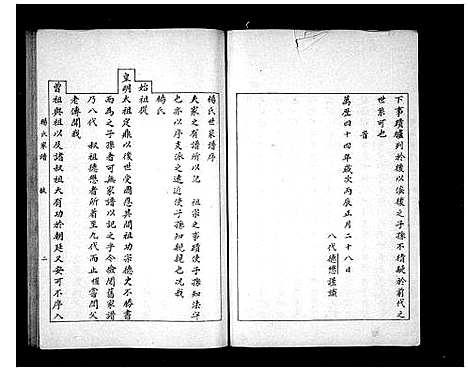 下事蹟臚列於後以俟後之子孫不積疑於前代之
世系可也
旹
萬曆四十四年歲次丙辰正月二十八日
八代德懋謹識
楊氏世家譜序
夫家之有譜所以記 祖宗之事蹟使子孫知法守
也亦以序支派之遠近使子孫知親親也況我
楊氏
始祖從
皇明太祖定鼎以後世受國恩其間祖功宗德史不勝書
而為之子孫者可無家譜以記之乎今檢閱舊家譜
乃八代 叔祖德懋者所著至九代而止楊嘗聞父
老傳聞我
曾祖與祖以及諸叔祖大有功於朝廷又安可不序入
楊氏家譜 敘 二